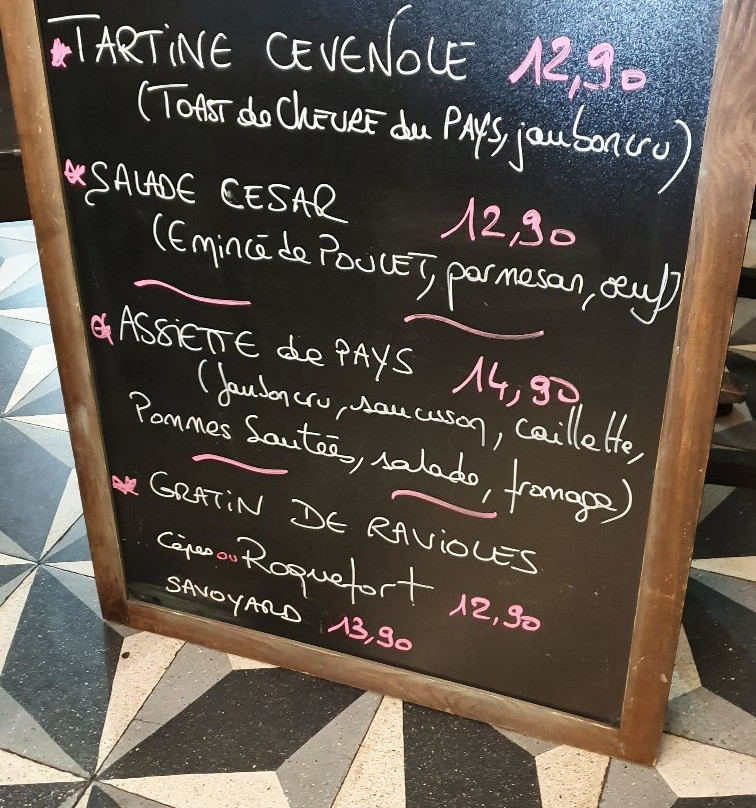 TARTINE CEVENOLE 12,90
(TOAST de CHEVRE du PAYS, jambon cru)
SALADE CESAR 12,90
(Emincé de POULET, parmesan, œuf)
ASSIETTE de PAYS 14,90
(Jambon cru, saucisson, caillette,
Pommes Sautées, salade, fromage)
GRATIN DE RAVIOLES
Cèpes ou Roquefort 12,90
SAVOYARD 13,90